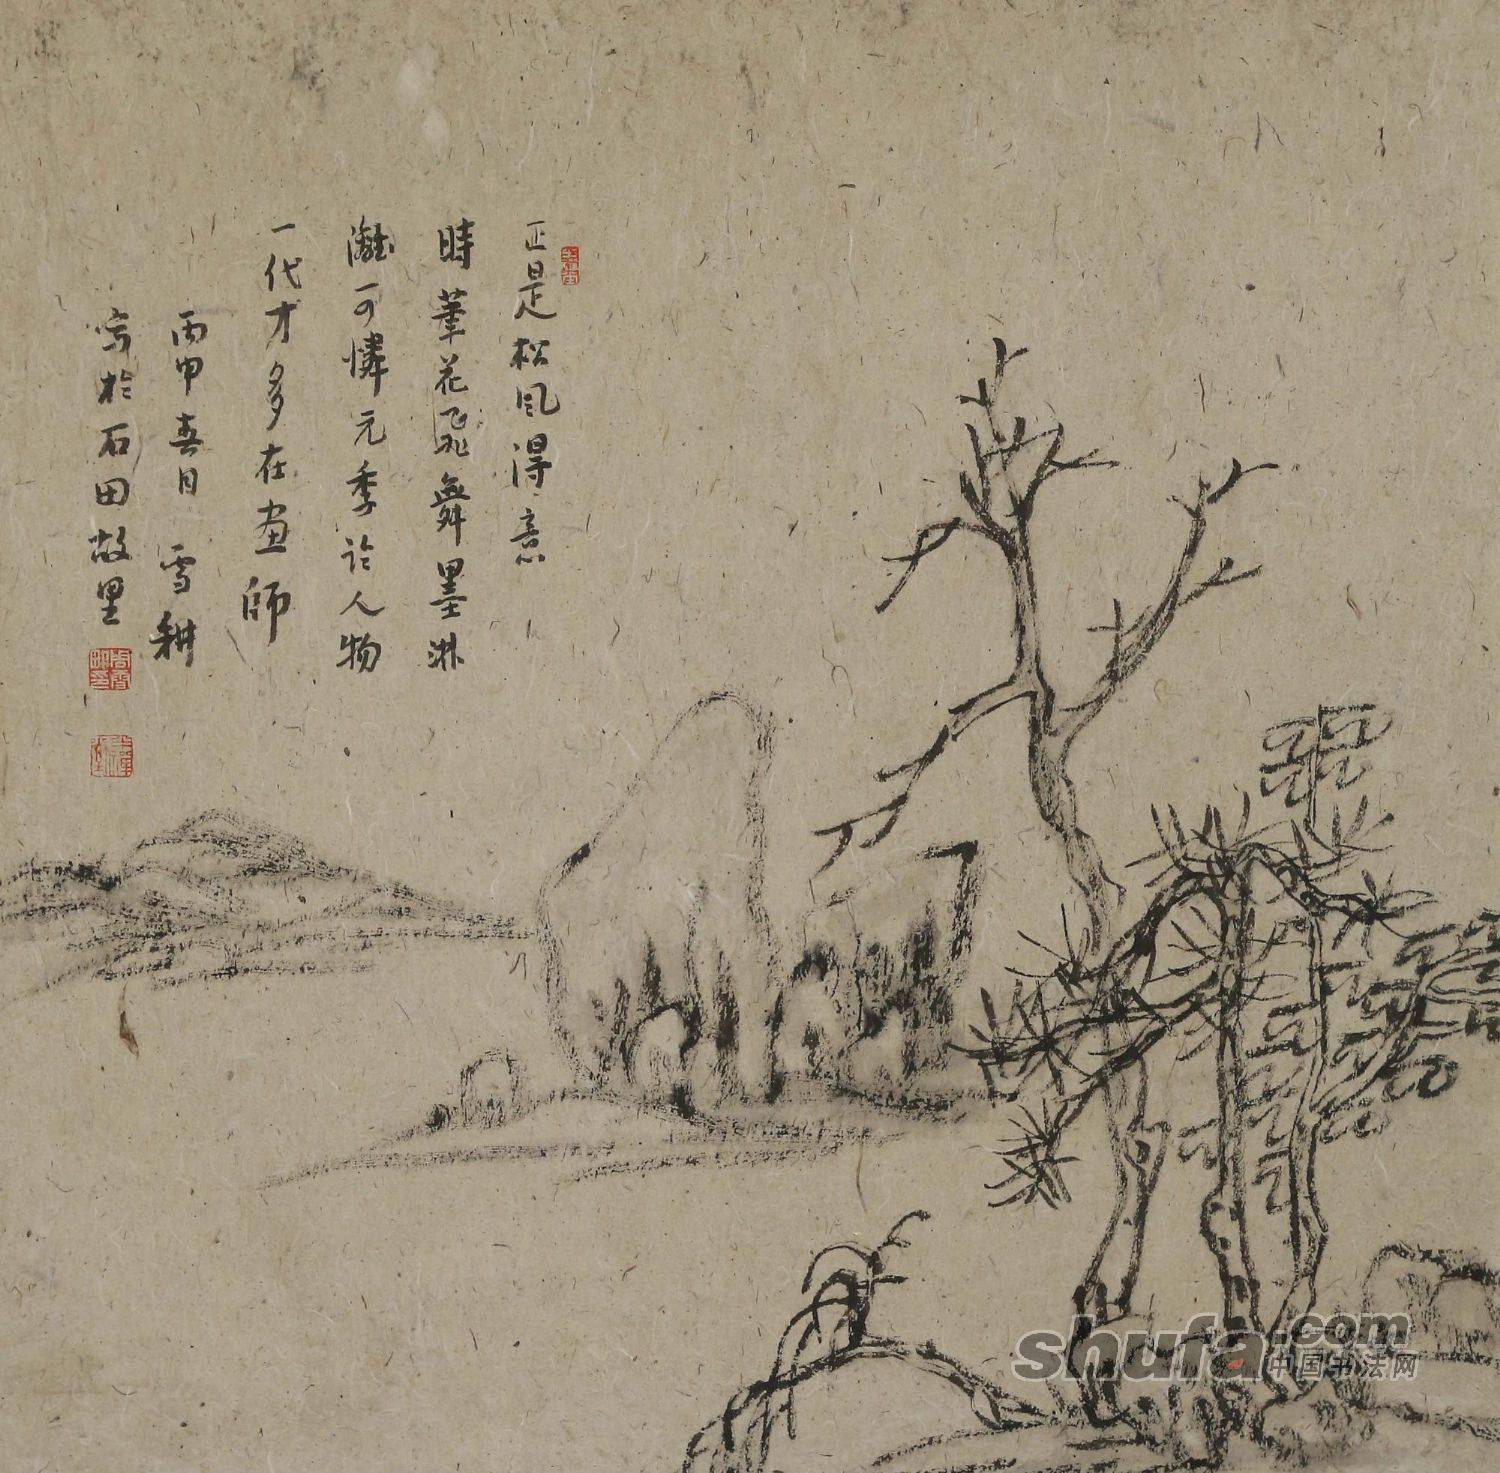 正是松风得意
時筆花飛舞墨淋
灕可憐元季论人物
一代才多在画師
丙申春日 雪耕
写於石田故里
shufa.com
中国书法网